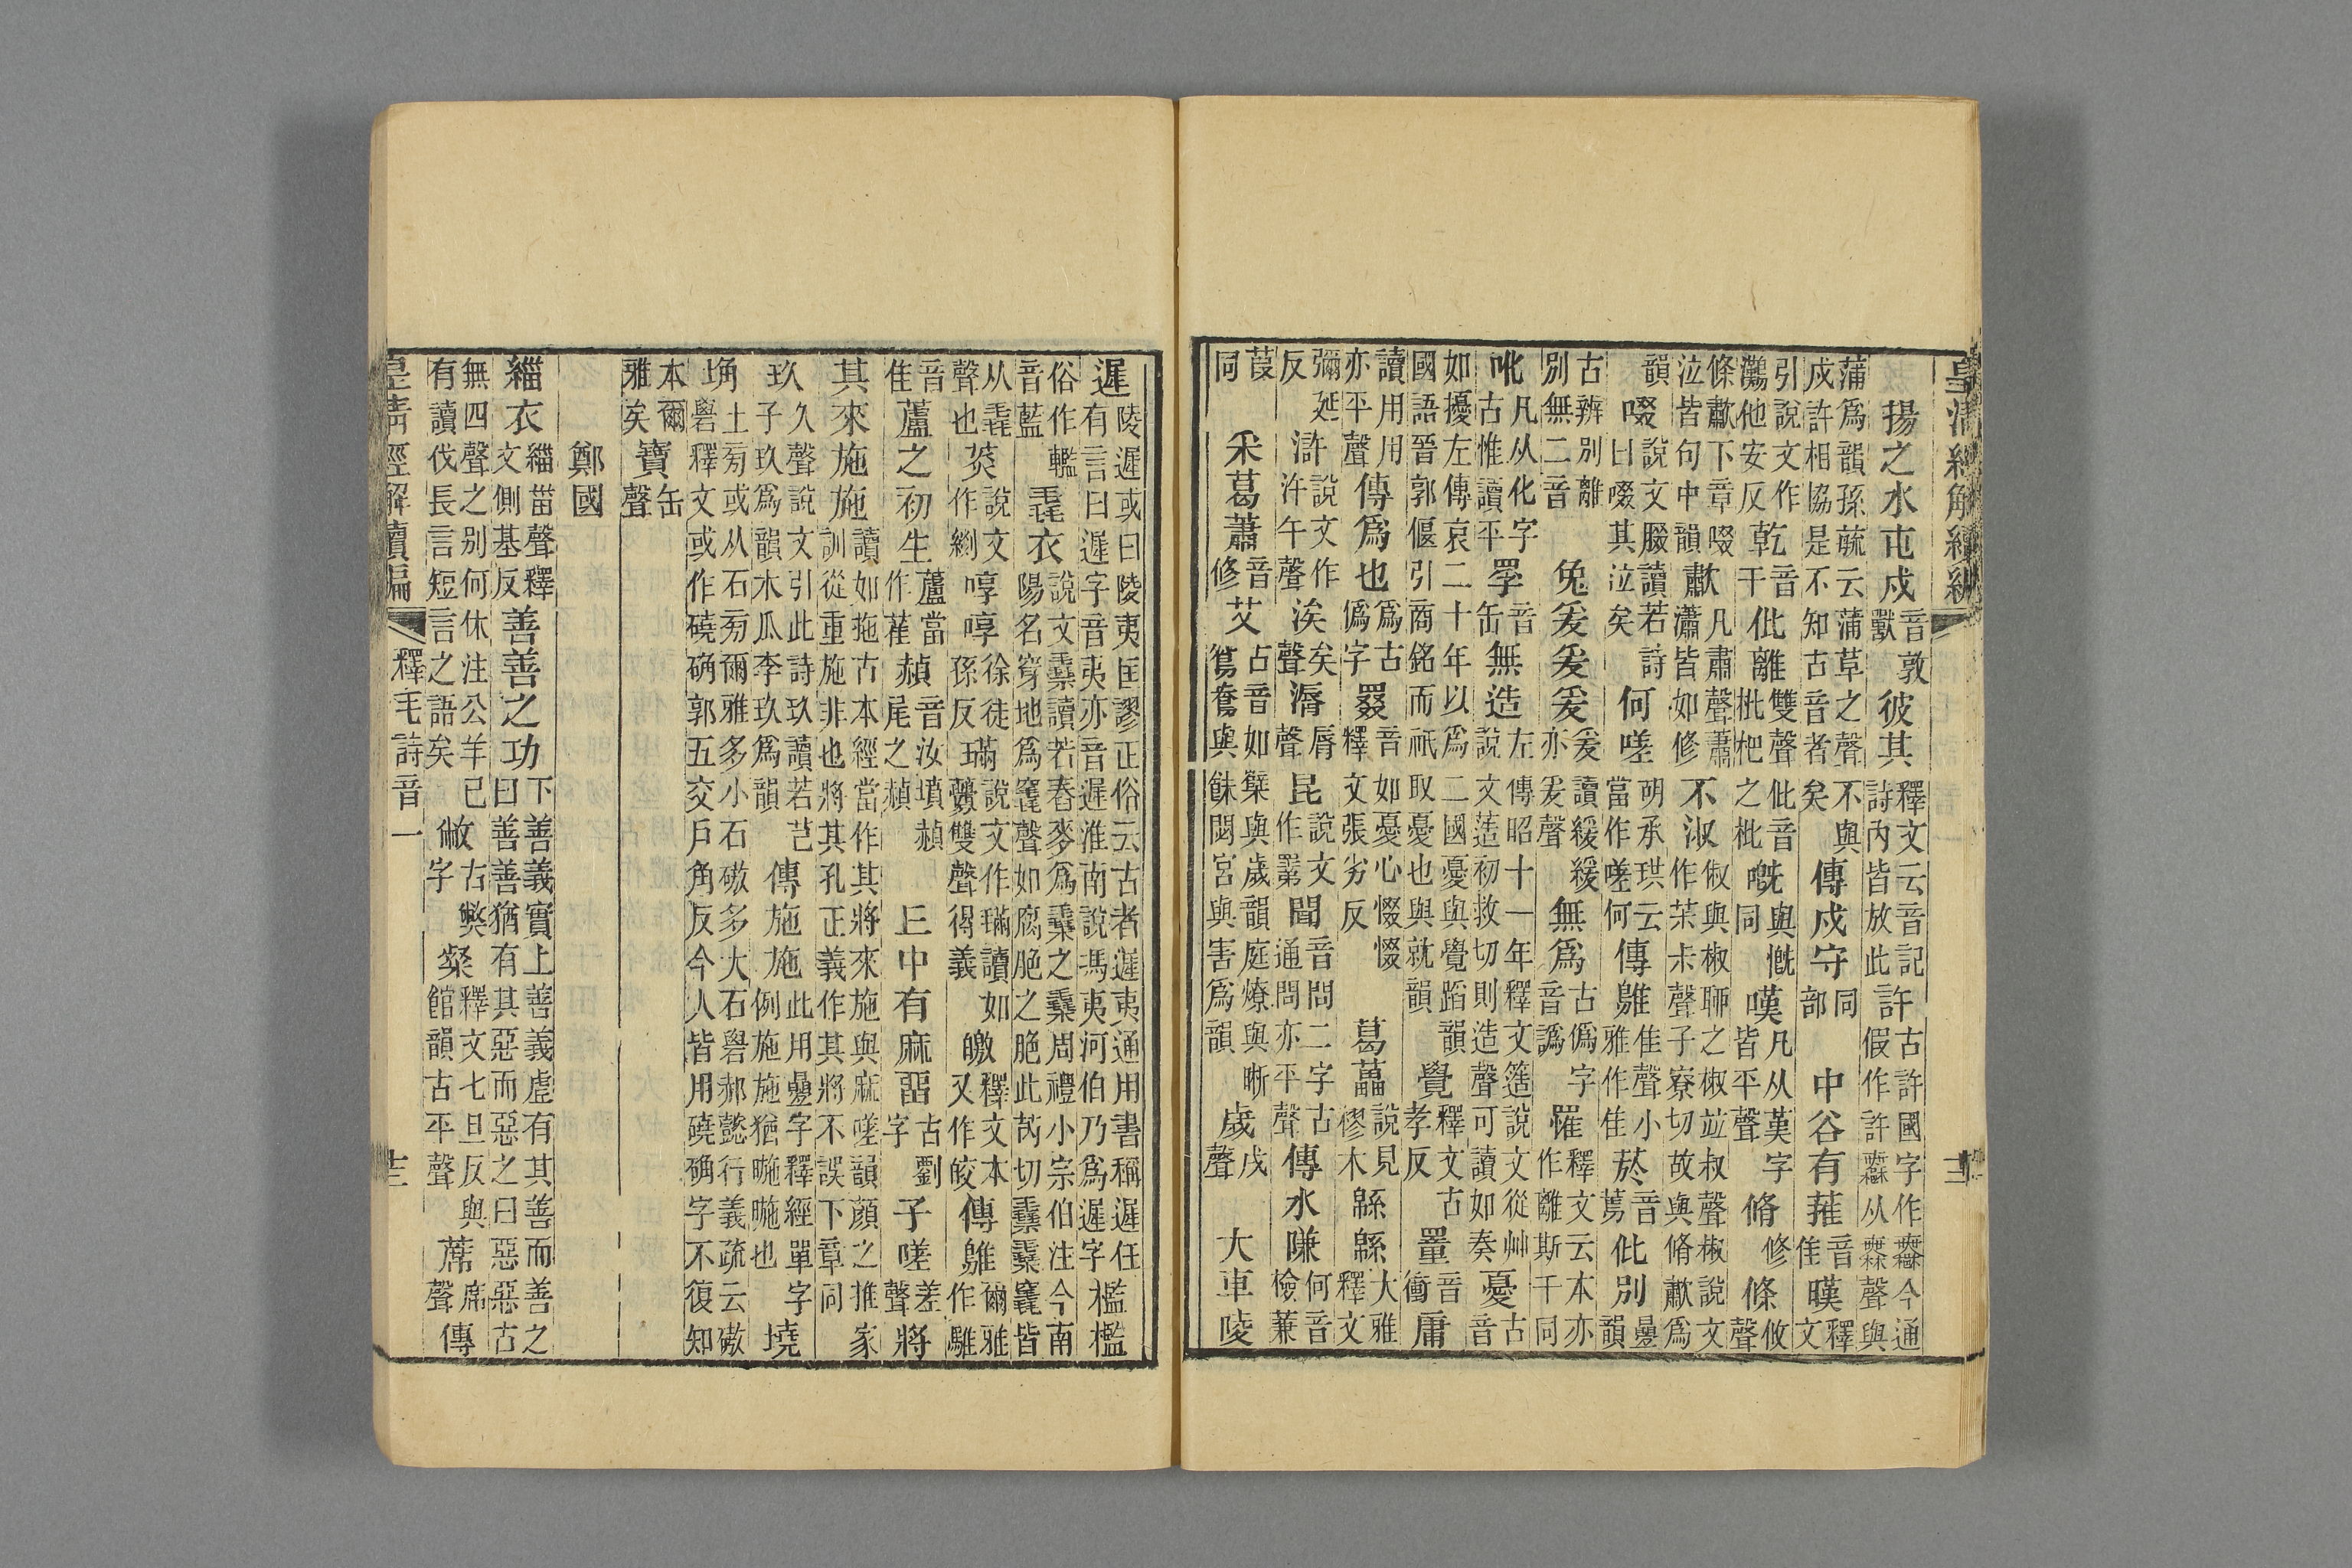 皇清經解續編
揚之水屯戍音敦獸彼其釋文云音記詩內皆放此許古許國字作鄦今通假作許鄦从無聲與
蒲爲韻孫毓云蒲草之聲不與戍許相協是不知古音者矣傳戍守同部中谷有蓷音隹暵釋文
引說文作灘他安反乾音干仳離雙聲仳音枇杷之枇嘅與慨同嘆凡从漢字皆平聲脩修條攸聲
條歗下章啜泣皆句中韻歗凡肅聲蕭瀟皆如修不淑俶與椒聊之椒並叔聲椒說文作茮尗聲子寮切故與脩歗爲
韻啜說文腏讀若詩曰啜其泣矣何嗟胡承珙云當作嗟何傳鵻隹聲小雅作隹菸音蔫仳別疊韻
古辨別離別無二音兔爰爰爰爰讀緩緩亦爰聲無爲古僞字音譌罹釋文云本亦作離斯干同
吪凡从化字古惟讀平罦音缶無造左傳昭十一年釋文簉說文從艸說文䔏初救切則造聲可讀如奏憂古音
如擾左傳哀二十年以爲二國憂與覺蹈韻國語晉郭偃引商銘而祇取憂也與就韻覺釋文古孝反罿音衝庸
讀用用亦平聲傳爲也爲古僞字罬音如憂心惙惙釋文張劣反葛藟說見樛木緜緜大雅釋文
彌延反滸說文作汻午聲涘矣聲漘脣聲昆說文作䍚聞音問二字古通問亦平聲傳水隒何音檢兼
葭同采葛蕭音修艾古音如糱與歲韻庭燎與晣鴛鴦與餗閟宮與害爲韻歲戌聲大車陵
遲陵遲或曰陵夷匡謬正俗云古者遲夷通用書稱遲任有言曰遲字音夷亦音遲淮南說馮夷河伯乃爲遲字檻檻
俗作轞音藍毳衣說文讀若舂麥爲之周禮小宗伯注今南陽名穿地爲竁聲如腐脃之脃此芮切竁皆
从毳聲也菼說文作啍啍徐徒孫反璊說文作璊讀如虋雙聲得義皦釋文本又作皎傳鵻爾雅作騅
音隹蘆之初生蘆當作雈赬音汝墳赬尾之赬丘中有麻留古劉字子嗟差聲將
其來施施讀如拖古本經當作其將來施與麻嗟韻顏之推家訓從重施非也將其孔正義作其將不誤下章同
玖久聲說文引此詩玖讀若芑子玖爲韻木瓜李玖爲韻傳施施此用疊字釋經單字例施施猶暆暆也墝
埆土旁或从石旁爾雅多小石磝多大石礐郝懿行義疏云磝礐釋文或作磽确郭五交戶角反今人皆用磽确字不復知
本爾雅矣寶缶聲
鄭國
緇衣緇甾聲釋文側基反善善之功下善義實上善義虛有其善而善之曰善善猶有其惡而惡之曰惡惡古
無四聲之別何休注公羊已有讀伐長言短言之語矣敝古弊字粲釋文七旦反與館韻古平聲蓆席聲傳
皇清經解續編 釋毛詩音一